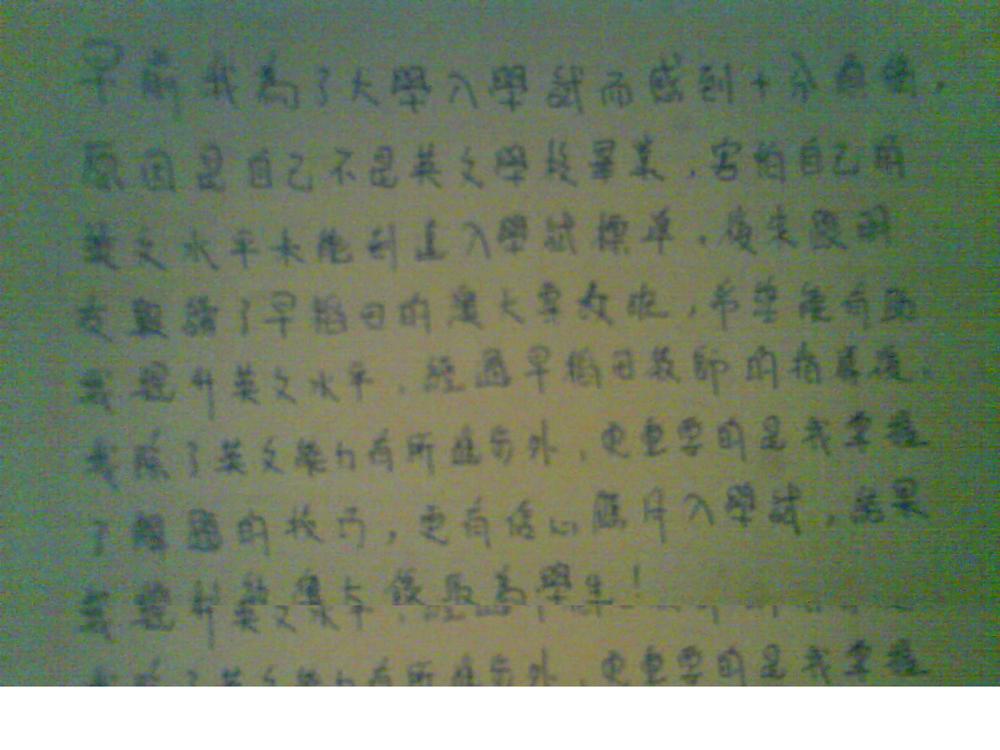 早前我為了大學入學試而感到十分
原因是自己不是英文學校畢業,害怕自己的
英文水平未能到達入學試標準。後來
讀了早稻田的澳大
我提升英文水平。經過早稻田教師的指導後,
我除了英文能力有所進步外,更重要的是我掌握
了解題的技巧,更有信心應付入學試,結果
澳大錄取為學生!
我提升英文水平,
我除了英文能力有所進步外,更重要的是我掌握